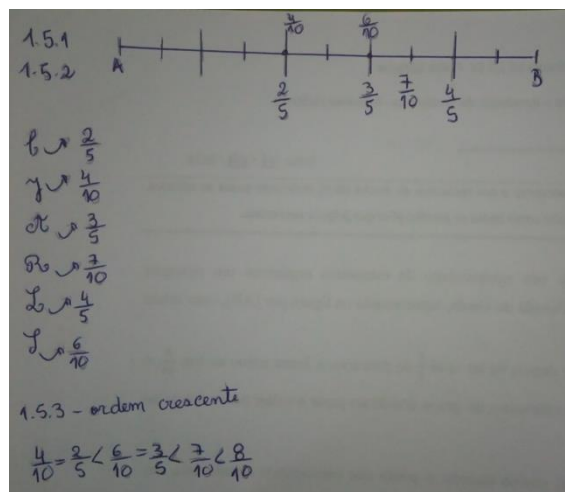 1.5.1
1.5.2
4/10 6/10
A B
2/5 3/5 7/10 4/5
b → 2/5
y → 4/10
R → 7/10
L → 4/5
→ 3/5
→ 6/10
1.5.3 - ordem crescente
4/10 = 2/5 < 6/10 = 3/5 < 7/10 < 8/10